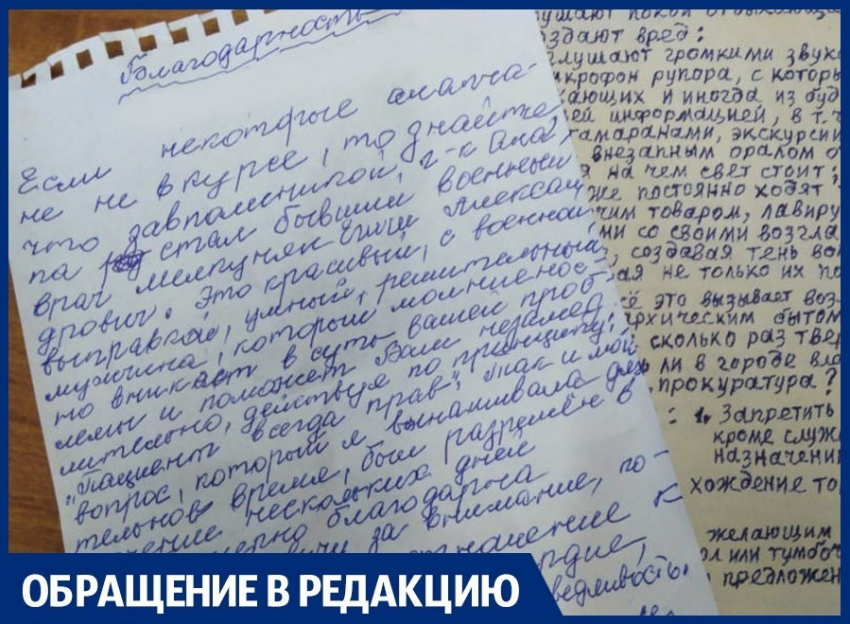 Благодарность
Если некоторые анапча-
не не в курсе, то знайте,
что г-к Ана-
па стал бывший военный
врач Алексан
дрович. Это красивый, с военной
выправкой, умный, решительный
мужчина, который молниенос-
но вникает в суть вашей проб
лемы и поможет Вам незамед
лительно, действуя по принципу:
"Пациент всегда прав". Так и мой
вопрос, который я вынашивала дли
тельное время, был разрешён в
чение нескольких дней
мерно благодарна
вичу за внимание, по-
тношение к
рдие,
ведливость.
ушают покой отдыхающ
оздают вред:
глушают громкими звук
икрофон рупора, с которы
кающих и иногда из буд
ей информацией, в т.ч
тамаранами, экскурсии
внезапным оралом о
я на чем свет стоит;
же постоянно ходят
чим товаром, лавиру
ми со своими возгла
, создавая тень во
ая не только их по
сё это вызывает воз
архическим бытом
сколько раз твер
ли в городе вла
прокуратура?
: 1. Запретить
кроме служ
назначени
хождение то
желающим
ол или тумбоч
предложен
ОБРАЩЕНИЕ В РЕДАКЦИЮ